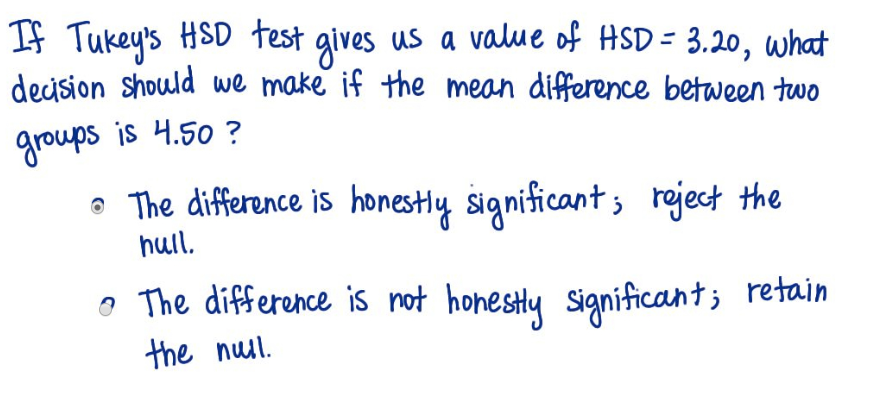 If Tukey's HSD test gives us a value of HSD = 3.20, what
decision should we make if the mean difference between two
groups is 4.50 ?
The difference is honestly significant; reject the
null.
The difference is not honestly significant; retain
the null.